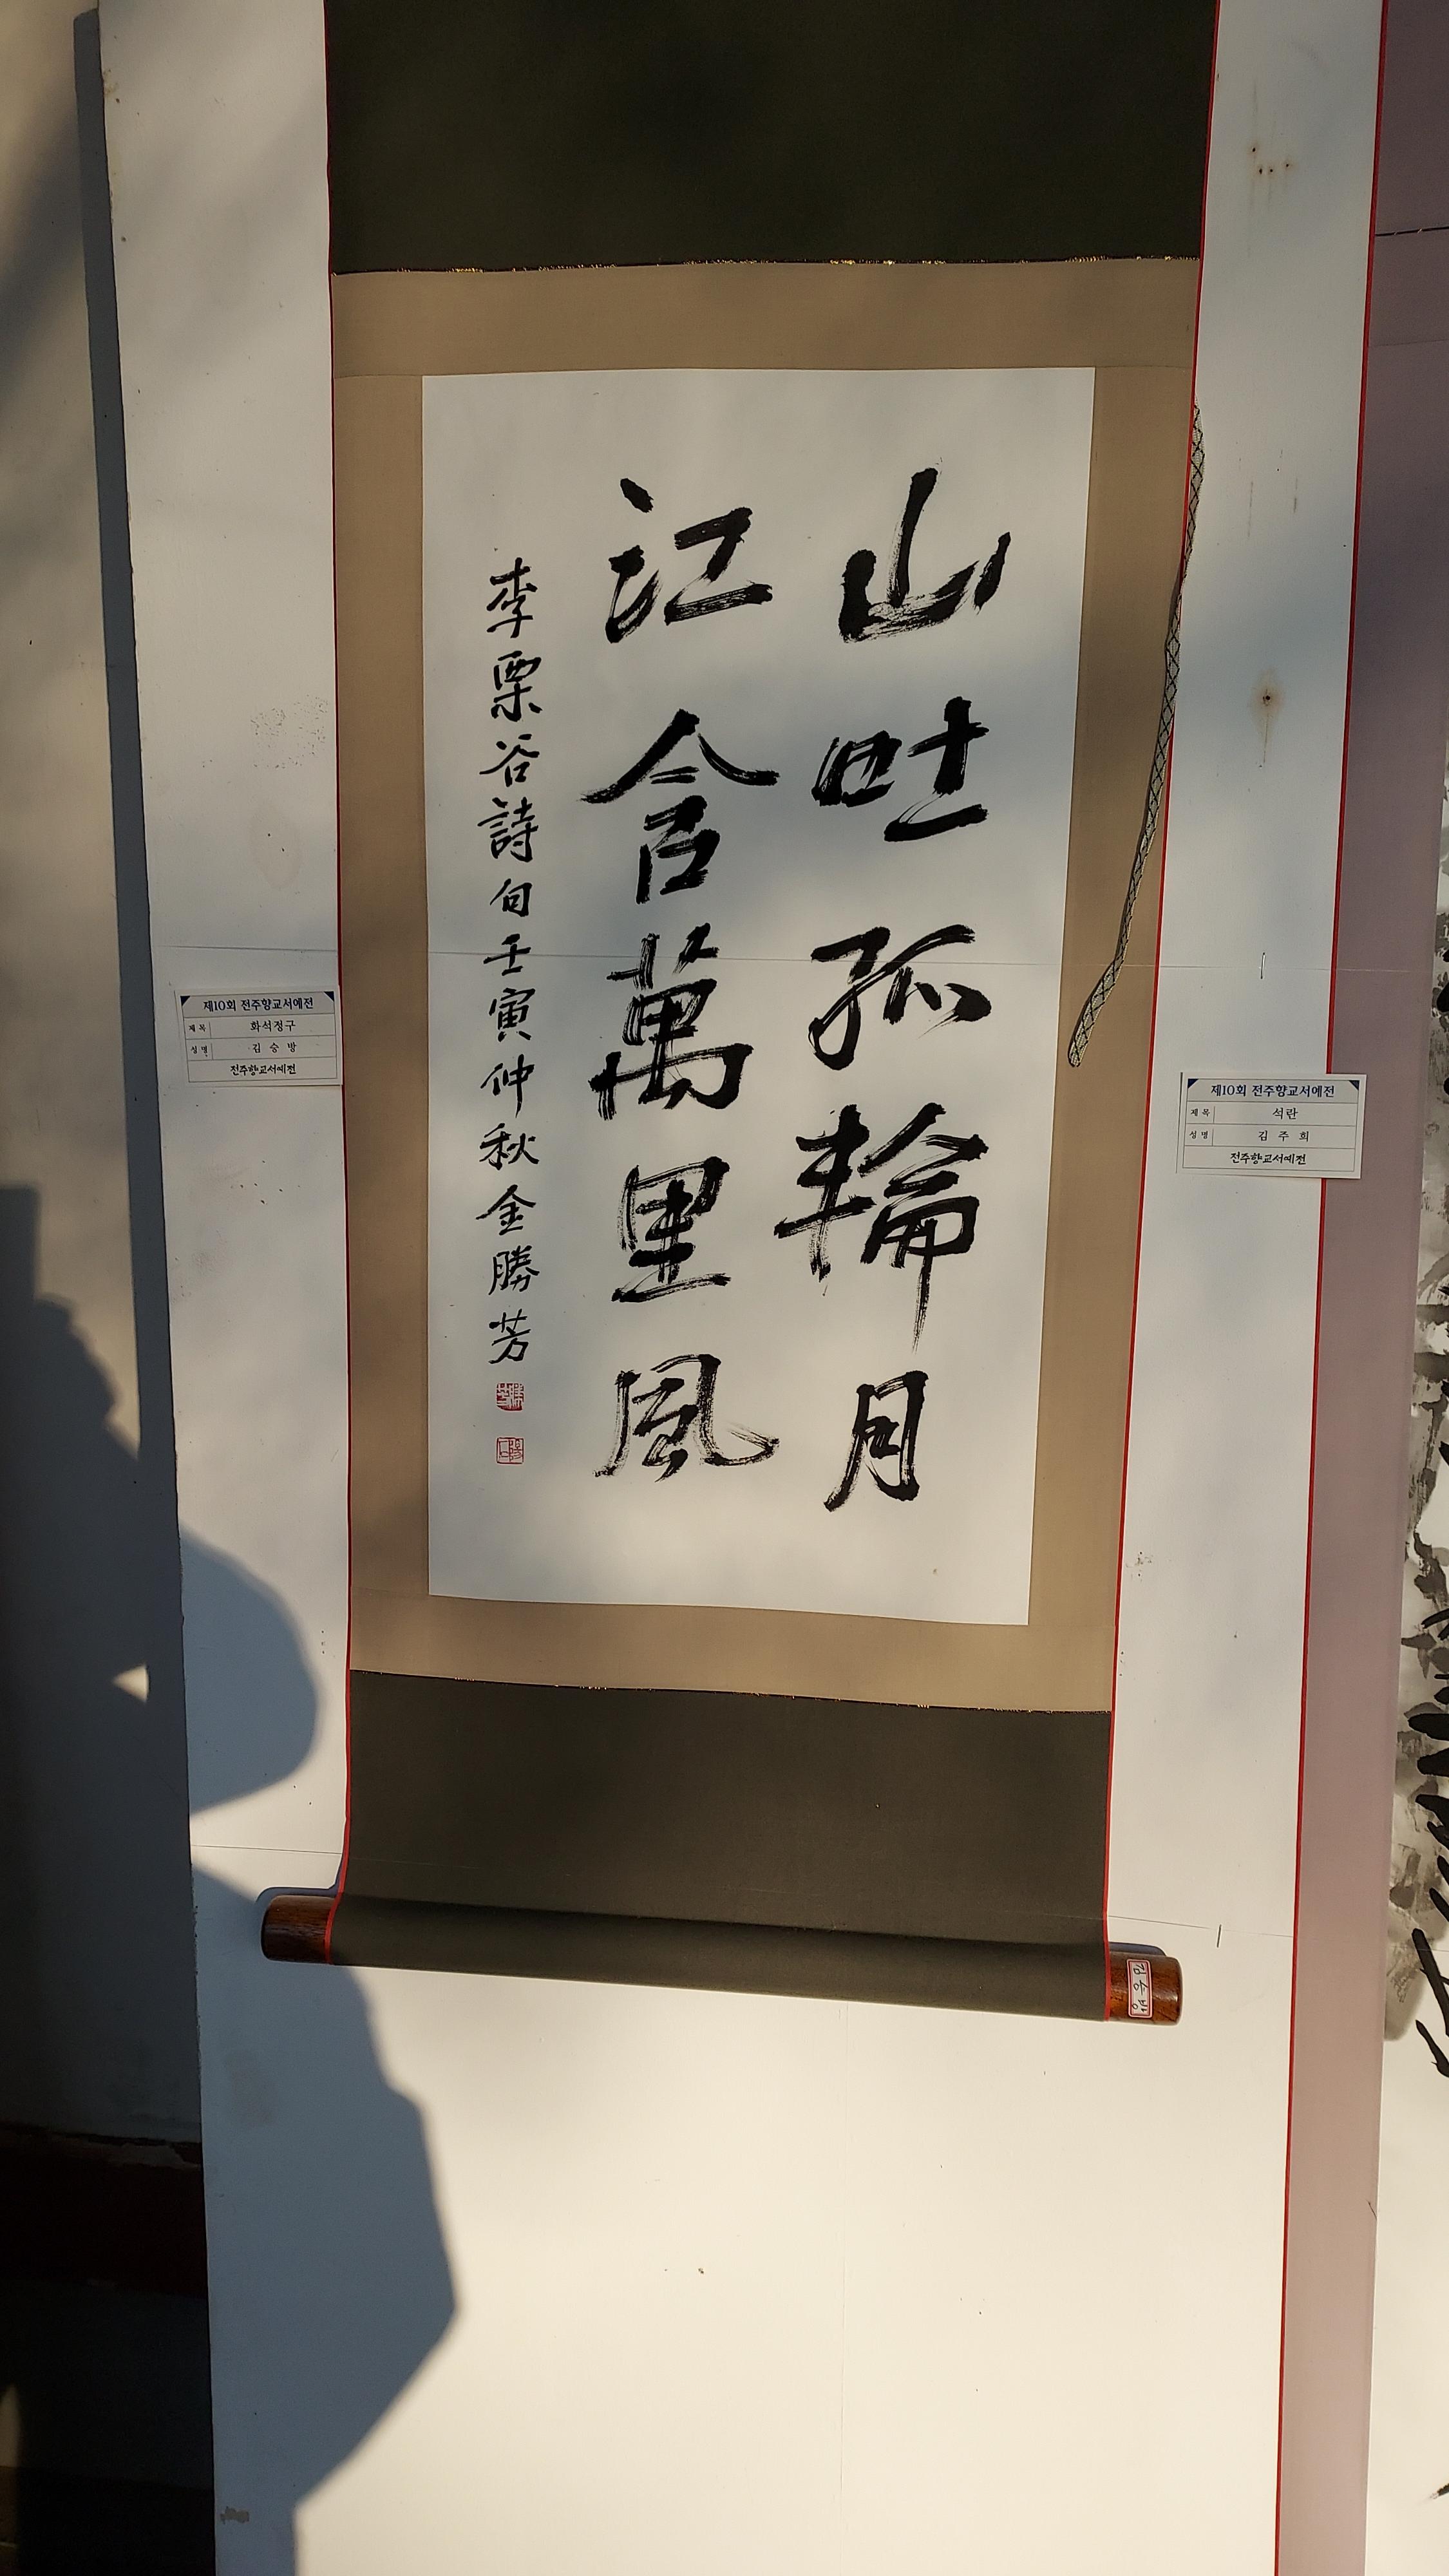 山吐孤輪月
江含萬里風
李栗谷詩句壬寅仲秋金勝芳
제10회 전주향교서예전
제목 화석정구
성명 김승방
전주향교서예전
제10회 전주향교서예전
제목 석란
성명 김주희
전주향교서예전
김승방